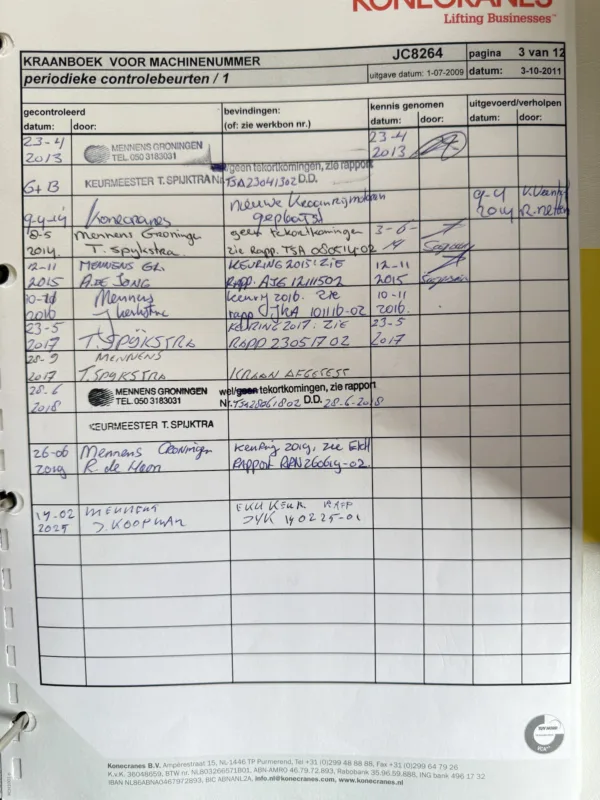 KONECRANES
Lifting Businesses™
KRAANBOEK VOOR MACHINENUMMER JC8264 pagina 3 van 12
periodieke controlebeurten / 1 uitgave datum: 1-07-2009 datum: 3-10-2011
gecontroleerd bevindingen: kennis genomen uitgevoerd/verholpen
datum: door: (of: zie werkbon nr.) datum: door: datum: door:
23-4 MENNENS GRONINGEN 23-4
2013 TEL. 050 3183031 wel/geen tekortkomingen, zie rapport 2013
G+B KEURMEESTER T. SPIJKTRA Nr. TSA23041302 D.D.
nieuwe 9-4
9-4-14 Konecranes geplaatst 2014
8-5 Mennens Groningen geen tekortkomingen 3-6-
2014 T. Spykstra. zie Rapp. TSA 080514-02 14
12-11 MENNENS GR. KEURING 2015: ZIE 12-11
2015 A. DE JONG RAPP. AJG 12111502 2015
Mennens keuring 2016. zie 10-11
2016 rapp JKA 101116-02 2016.
23-5 KEURING 2017. ZIE 23-5
2017 T. SPIJKSTRA RAPP 23051702 2017
28-9 MENNENS
2017 T. SPYKSTRA KRAAN AFGETEST
28-6 MENNENS GRONINGEN wel/geen tekortkomingen, zie rapport
2018 TEL. 050 3183031 Nr. TSA28061802 D.D. 28-6-2018
KEURMEESTER T. SPIJKTRA
26-06 Mennens Groningen Keuring 2019, zie
2019 R. de Haan Rapport RAN260619-02
14-02 MENNENS
2025 J. KOOPMAN JYK 140225-01
Konecranes B.V. Ampèrestraat 15, NL-1446 TP Purmerend, Tel +31 (0)299 48 88 88, Fax +31 (0)299 64 79 26
K.v.K. 36048659, BTW nr. NL803266571B01, ABN-AMRO 46.79.72.893, Rabobank 35.96.59.888, ING bank 496 17 32
IBAN NL86ABNA0467972893, BIC ABNANL2A, info.nl@konecranes.com, www.konecranes.nl